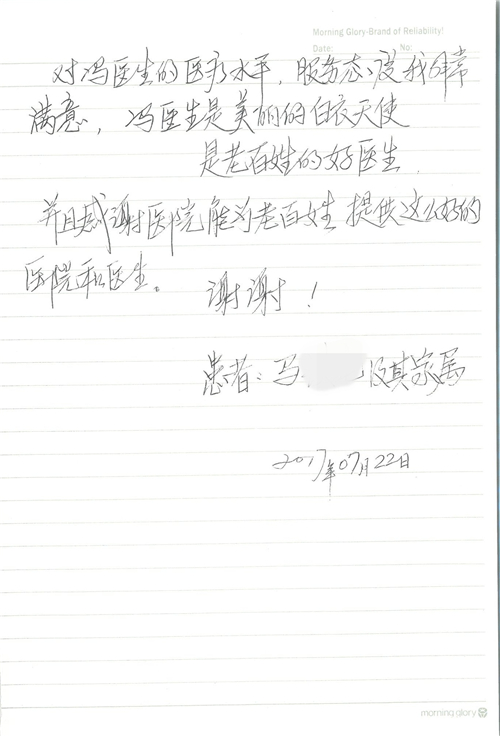 Morning Glory-Brand of Reliability!
Date: No:
对冯医生的医疗水平，服务态度我非常
满意，冯医生是美丽的白衣天使
是老百姓的好医生
并且感谢医院能为老百姓提供这么好的
医院和医生。谢谢！
患者：马 及其家属
2017年07月22日
morning glory